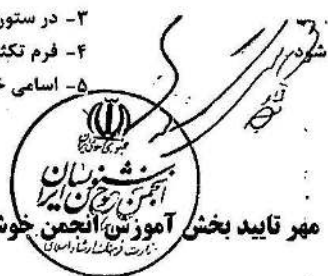 ۳- در ستون
شود.
۴- فرم تکث
۵- اسامی خ
جمهوری اسلامی ایران
انجمن خوشنویسان ایران
وزارت فرهنگ و ارشاد اسلامی
مهر تایید بخش آموزش انجمن خوش